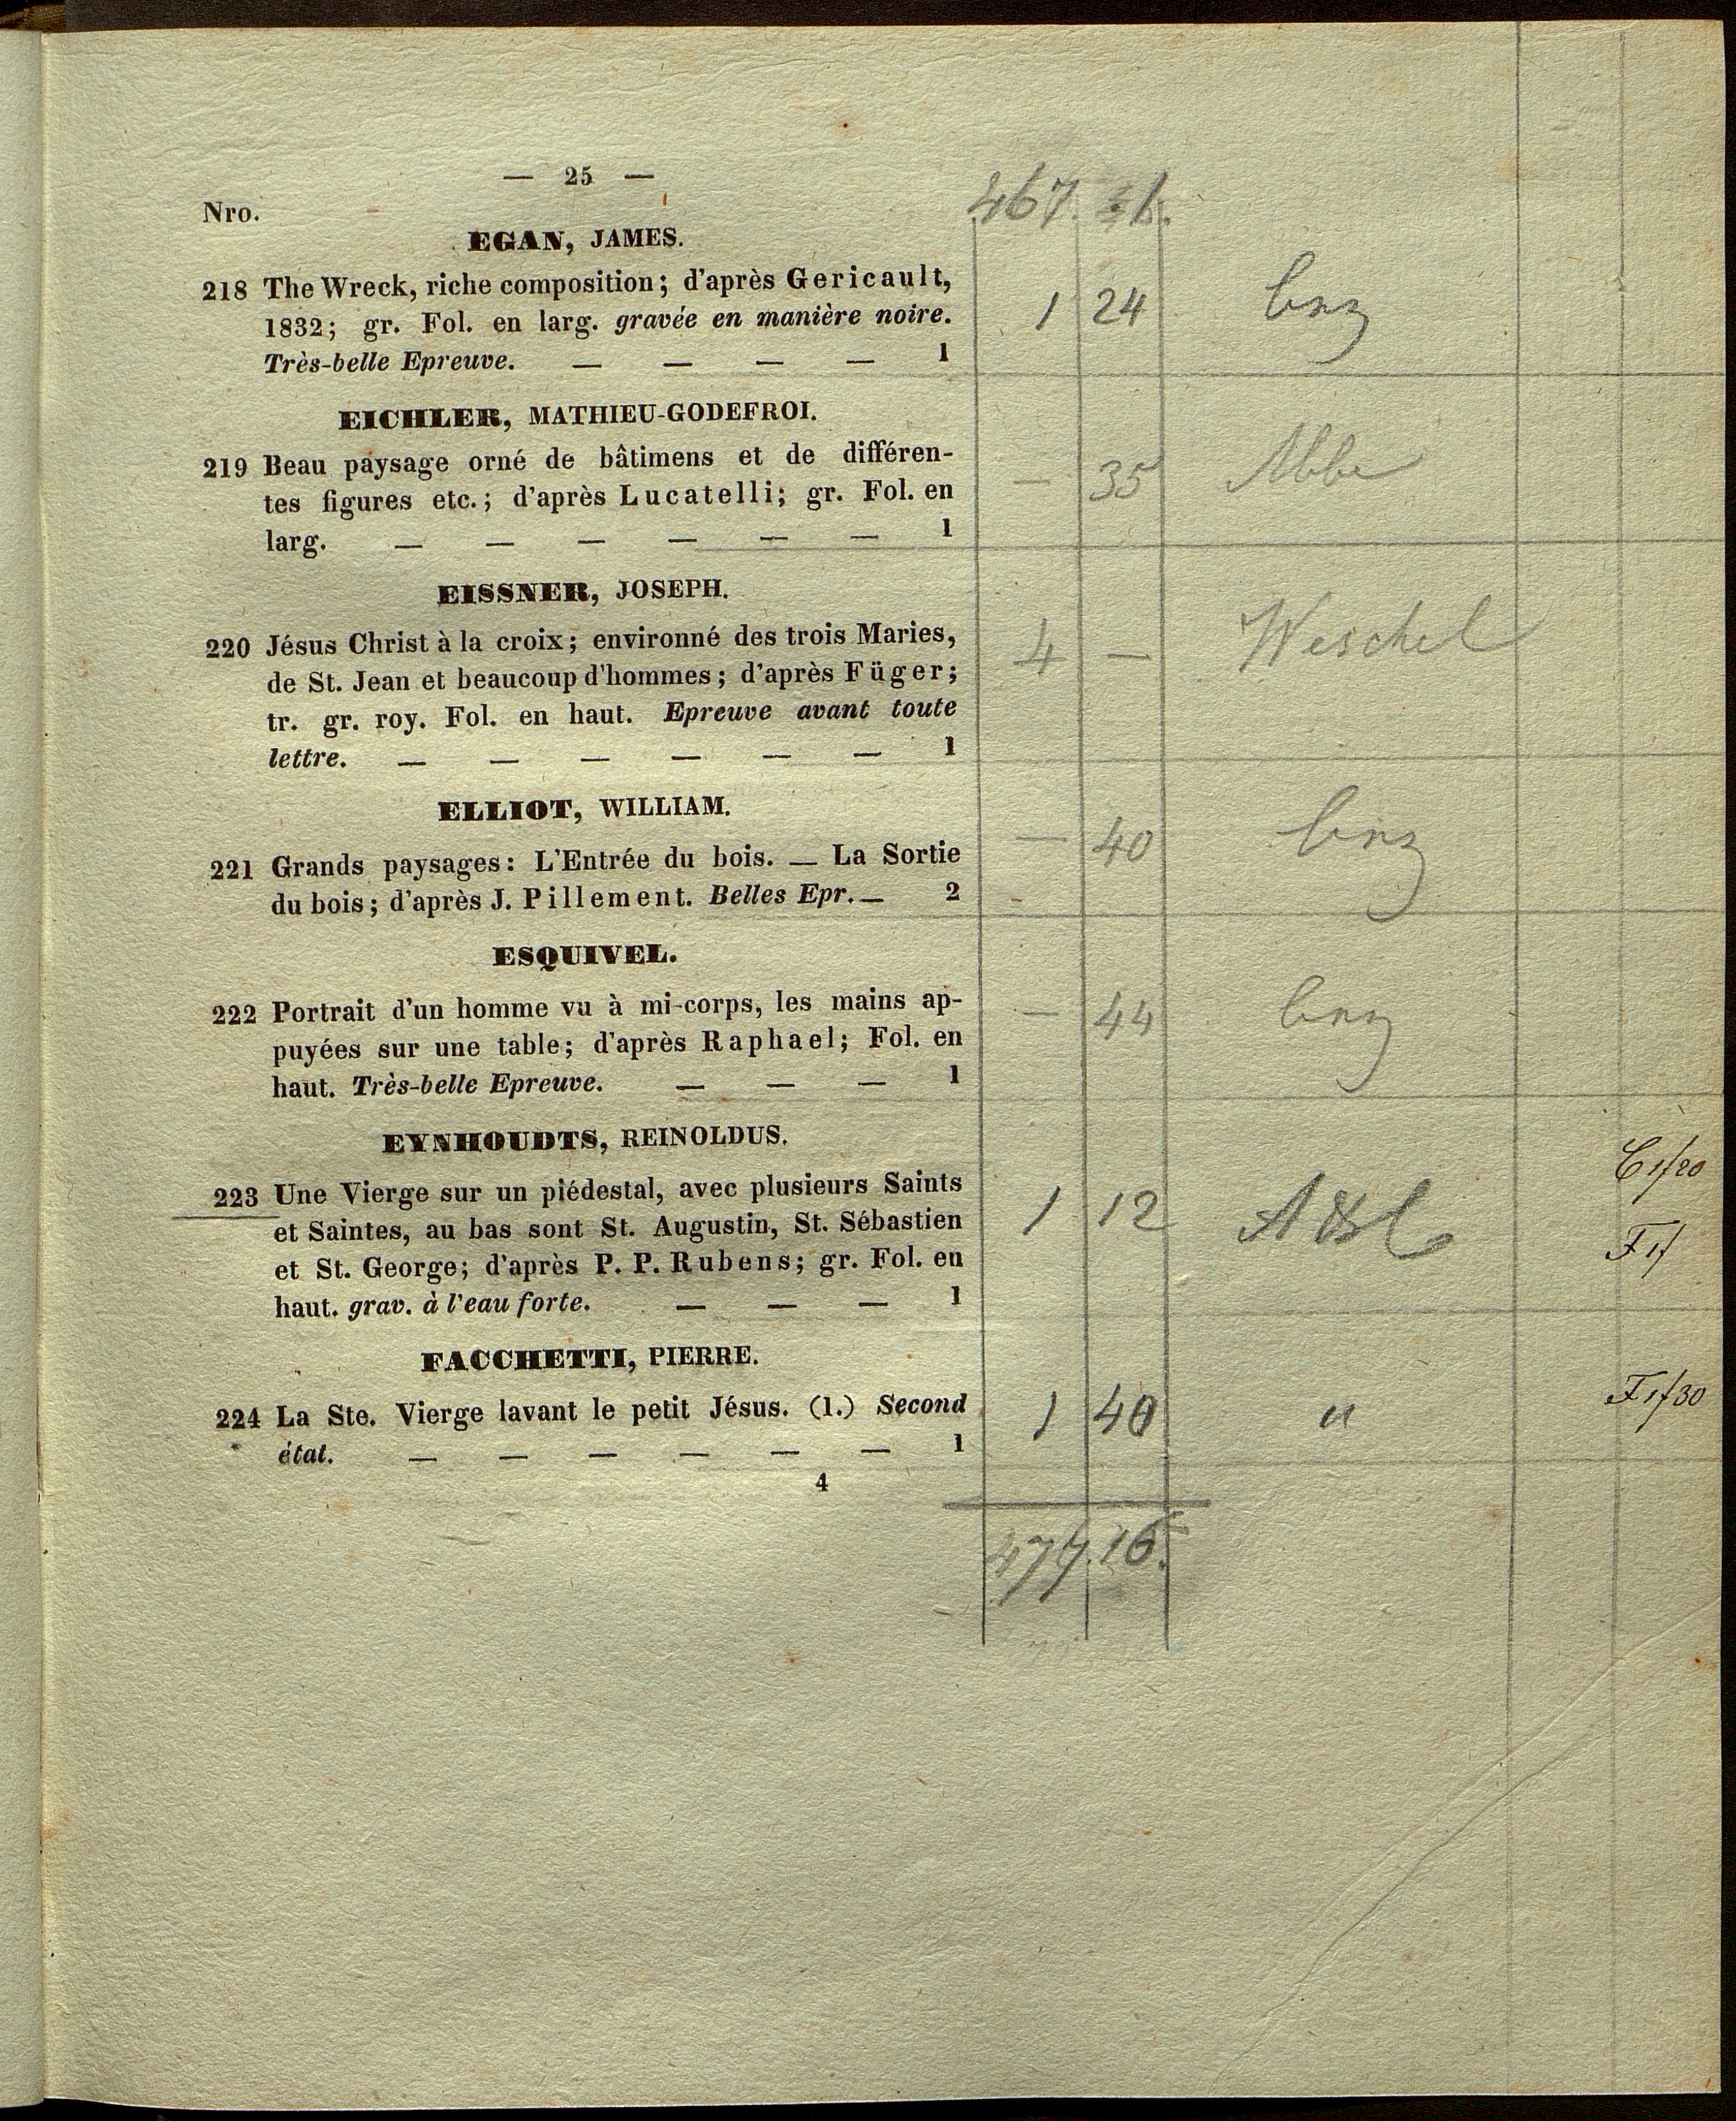 — 25 —
467. 1.
Nro.
EGAN, JAMES.
218 The Wreck, riche composition; d'après Gericault,
1832; gr. Fol. en larg. gravée en manière noire.
Très-belle Epreuve. — — — — 1
1 24
EICHLER, MATHIEU-GODEFROI.
219 Beau paysage orné de bâtimens et de différen-
tes figures etc.; d'après Lucatelli; gr. Fol. en
larg. — — — — — — 1
— 35
EISSNER, JOSEPH.
220 Jésus Christ à la croix; environné des trois Maries,
de St. Jean et beaucoup d'hommes; d'après Füger;
tr. gr. roy. Fol. en haut. Epreuve avant toute
lettre. — — — — — — 1
4 — Weschel
ELLIOT, WILLIAM.
221 Grands paysages: L'Entrée du bois. — La Sortie
du bois; d'après J. Pillement. Belles Epr. — 2
— 40
ESQUIVEL.
222 Portrait d'un homme vu à mi-corps, les mains ap-
puyées sur une table; d'après Raphael; Fol. en
haut. Très-belle Epreuve. — — — 1
— 44
EYNHOUDTS, REINOLDUS.
223 Une Vierge sur un piédestal, avec plusieurs Saints
et Saintes, au bas sont St. Augustin, St. Sébastien
et St. George; d'après P. P. Rubens; gr. Fol. en
haut. grav. à l'eau forte. — — — 1
1 12
C 1f20
F 1f
FACCHETTI, PIERRE.
224 La Ste. Vierge lavant le petit Jésus. (1.) Second
état. — — — — — — 1
1 40 "
F 1f30
4
477.16.